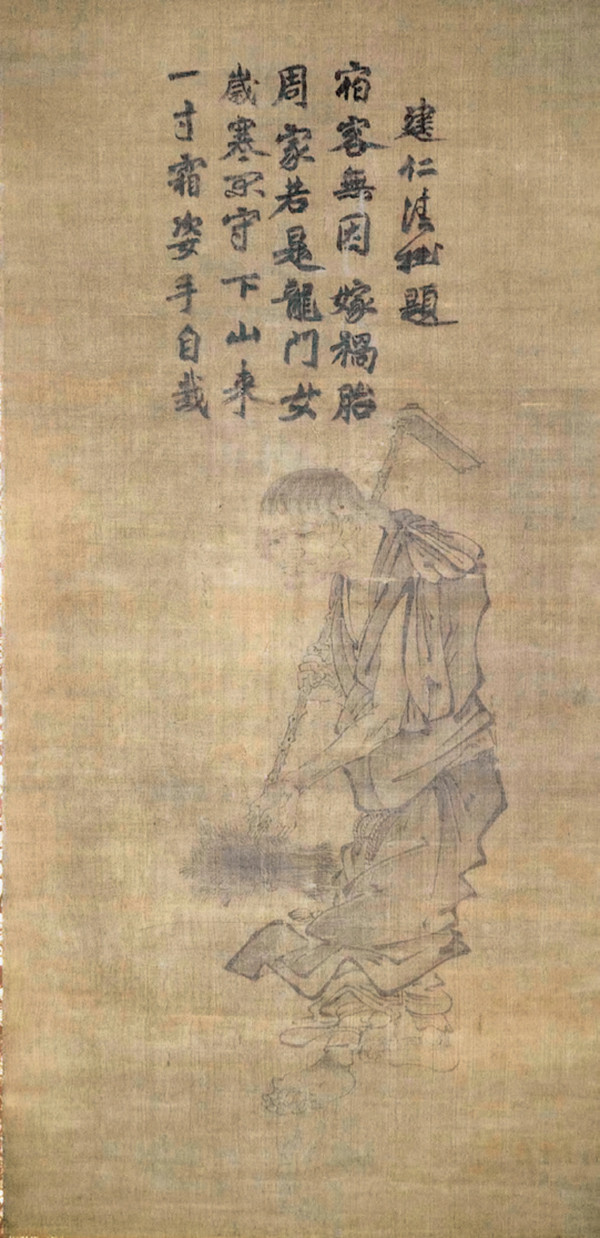 一寸霜姿手自栽
歲寒不守下山来
周家若是龍門女
宿客無因嫁禍胎
建仁清拙題